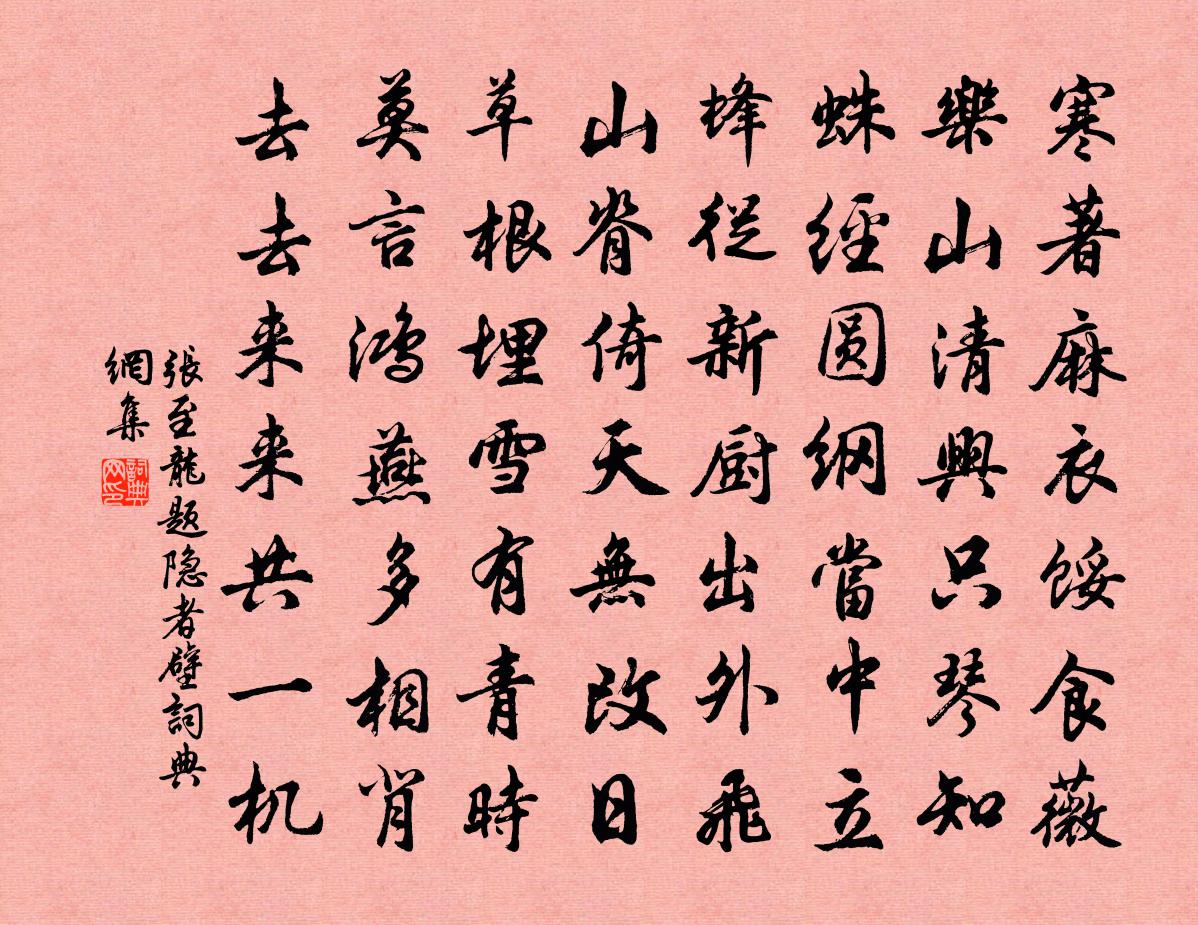 寒著麻衣餒食薇
樂山清興只琴知
蛛經圆網當中立
蜂從新厨出外飛
山脊倚天無改日
草根埋雪有青時
莫言鴻燕多相肖
去去来来共一机
張至龍題隐者壁詞典
網集
詞典
网印